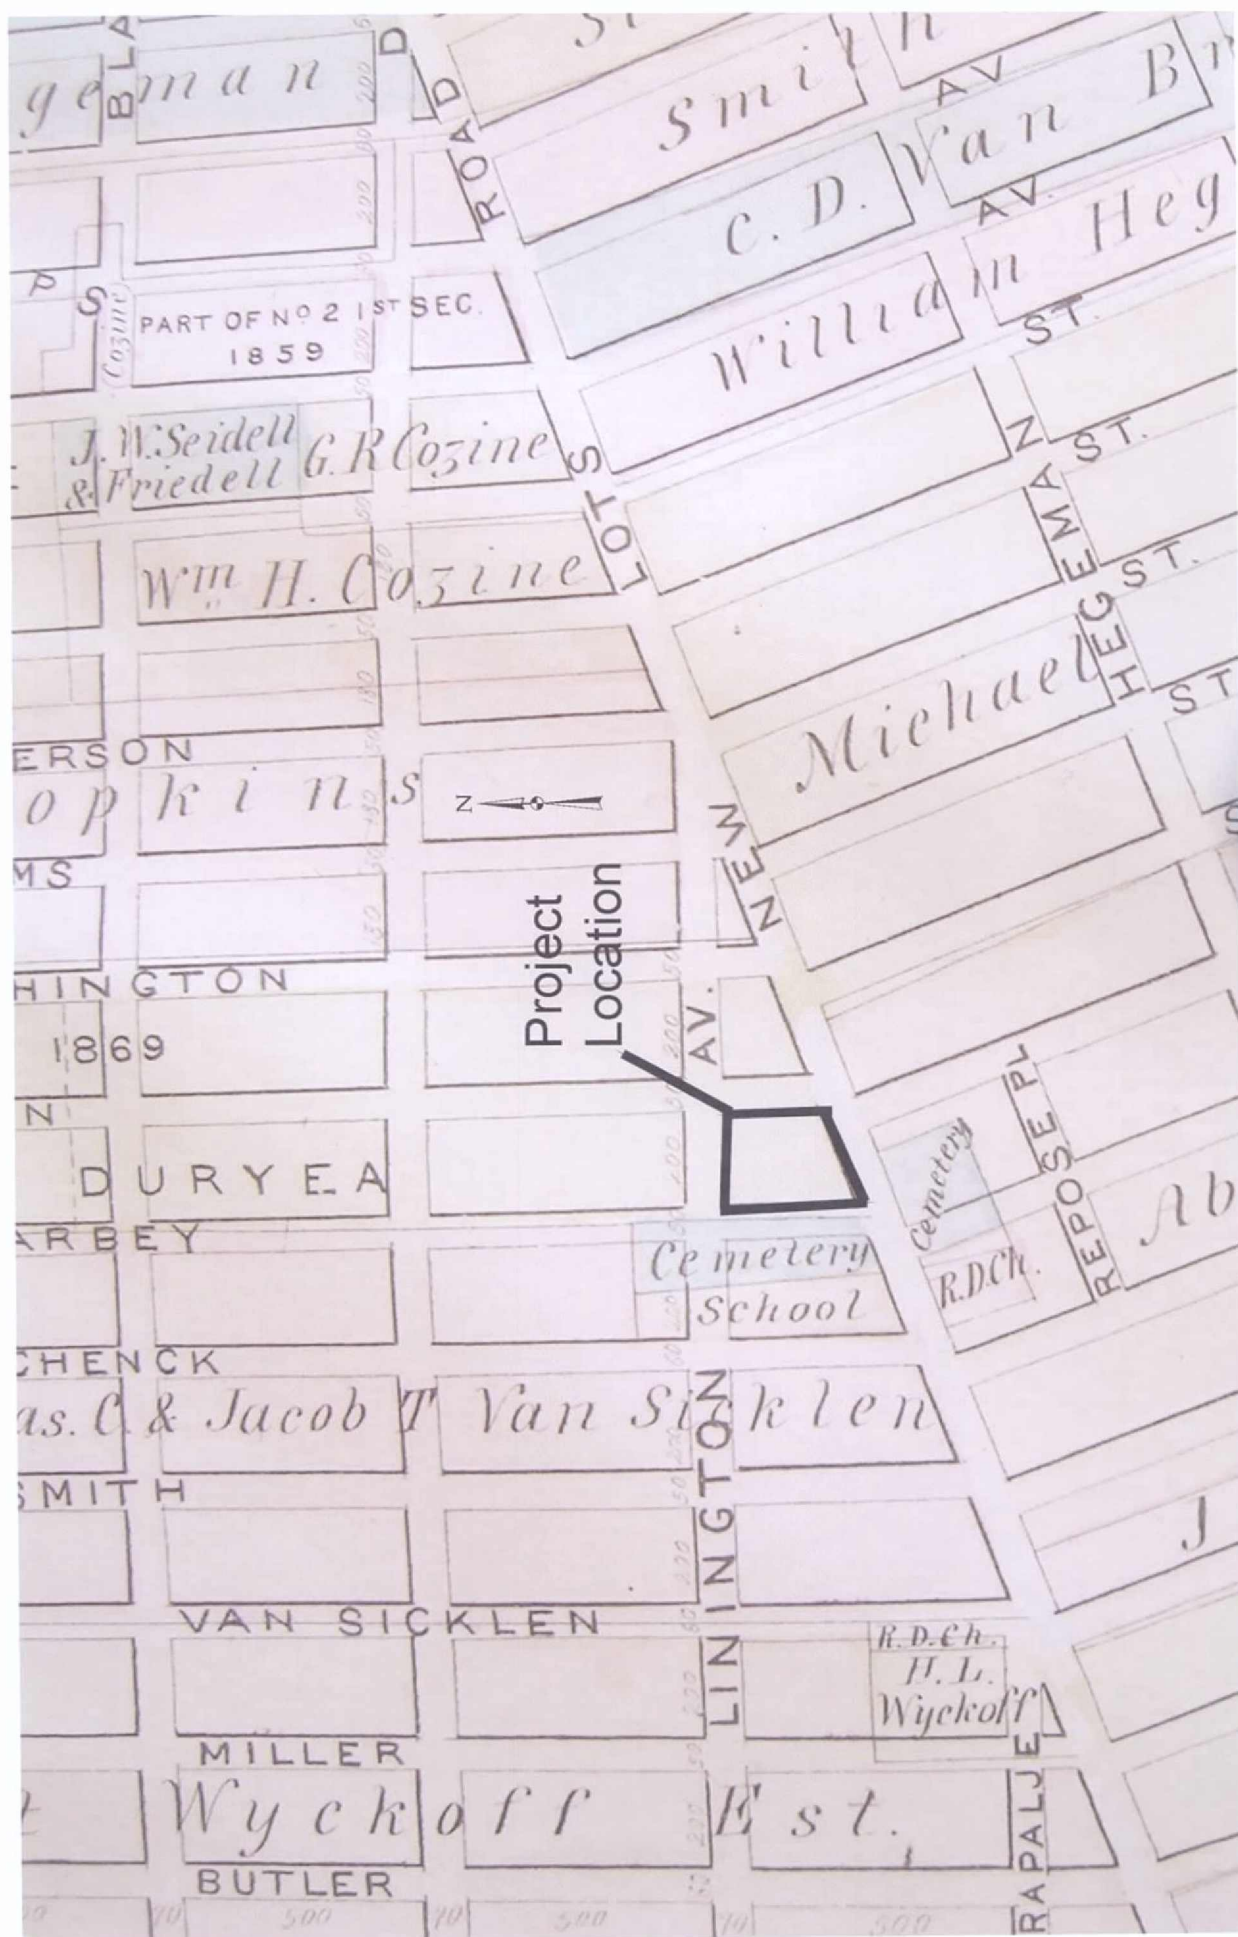 geman
BLA
D
ROAD
Smith
AV
Van Br
C. D.
AV.
William Heg
P
S
(Cozine)
PART OF No 2 1ST SEC.
1859
200
ST.
J. W. Seidell
& Friedell
G. R Cozine
LOTS
HEGEMAN
ST.
Wm H. Cozine
ST.
Michael
ST
ERSON
opkins
N
NEW
MS
Project
Location
HINGTON
1869
AV.
N
DURYEA
ARBEY
Cemetery
School
Cemetery
R.D.Ch.
REPOSE PL
REPOSE
Ab
CHENCK
as. C. & Jacob T Van Sicklen
SMITH
LININGTON
J
VAN SICKLEN
R.D.Ch.
H. L.
Wyckoff
MILLER
t Wyckoff Est.
RAPALJE
BUTLER
70
500
70
500
70
500